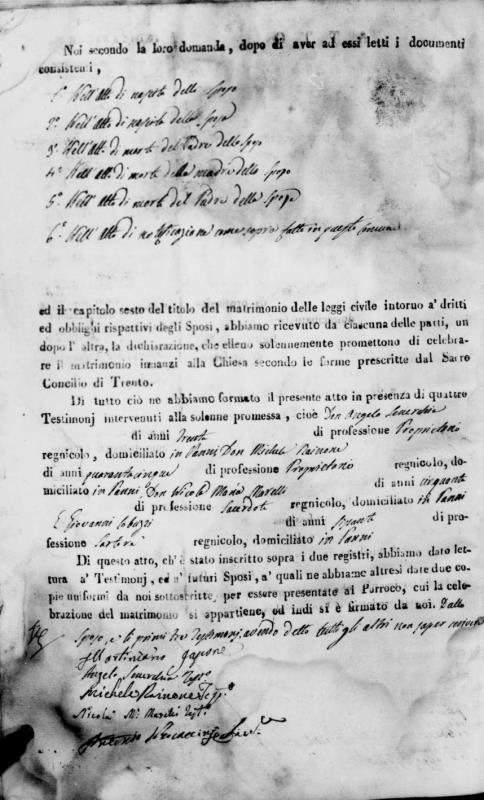 Noi secondo la loro domanda, dopo di aver ad essi letti i documenti
consistenti,
1º Nell'Atto di nascita dello sposo
2º Nell'Atto di nascita della sposa
3º Nell'Atto di morte del Padre dello sposo
4º Nell'Atto di morte della madre dello sposo
5º Nell'Atto di morte del Padre della sposa
6º Nell'Atto di notificazione come sopra fatta in questo Comune
ed il capitolo sesto del titolo del matrimonio delle leggi civile intorno a' dritti
ed obblighi rispettivi degli Sposi, abbiamo ricevuto da ciascuna delle parti, un
dopo l' altra, la dichiarazione, che elleno solennemente promettono di celebra-
re il matrimonio innanzi alla Chiesa secondo le forme prescritte dal Sacro
Concilio di Trento.
Di tutto ciò ne abbiamo formato il presente atto in presenza di quattro
Testimonj intervenuti alla solenne promessa, cioè Don Angelo Senerchia
di anni trenta di professione Proprietario
regnicolo, domiciliato in Panni Don Michele Rainone
di anni quarantacinque di professione Proprietario regnicolo, do-
miciliato in Panni, Don Nicola Maria Marelli di anni cinquanta
di professione Sacerdote regnicolo, domiciliato in Panni
E Giovanni di anni di pro-
fessione Sartore regnicolo, domiciliato in Panni
Di questo atto, ch' è stato inscritto sopra i due registri, abbiamo dato let-
tura a' Testimonj, ed a' futuri Sposi, a' quali ne abbiamo altresì date due co-
pie uniformi da noi sottoscritte, per essere presentate al Parroco, cui la cele-
brazione del matrimonio si appartiene, ed indi si è firmato da noi. Dallo
Sposo, e li primi tre Testimonj, avendo detto tutti gli altri non saper scrivere
Angelo Senerchia Testº
Michele Rainone Testº
Nicola Mª Marelli Testº
Antonio